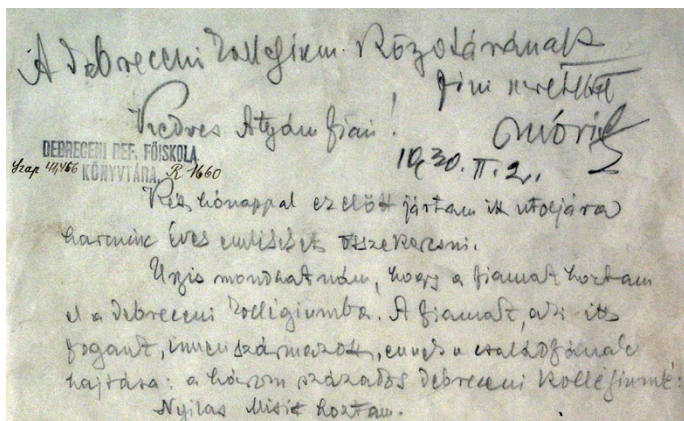 A debreceni Kollégium Könyvtárának
fiúi szeretettel
Móricz
1930. II. 2.
Kedves Atyámfiai!
DEBRECENI REF. FŐISKOLA
KÖNYVTÁRA.
R 1660
Két hónappal ezelőtt jártam itt utoljára
harminc éves emlékeket összekeresni.
Ugyis mondhatnám, hogy a fiamat hoztam
el a debreceni Kollégiumba. A fiamat, aki itt
fogant, innen származott, ennek a családfának
hajtása: a három százados debreceni Kollégiumé:
Nyilas Misit hoztam.